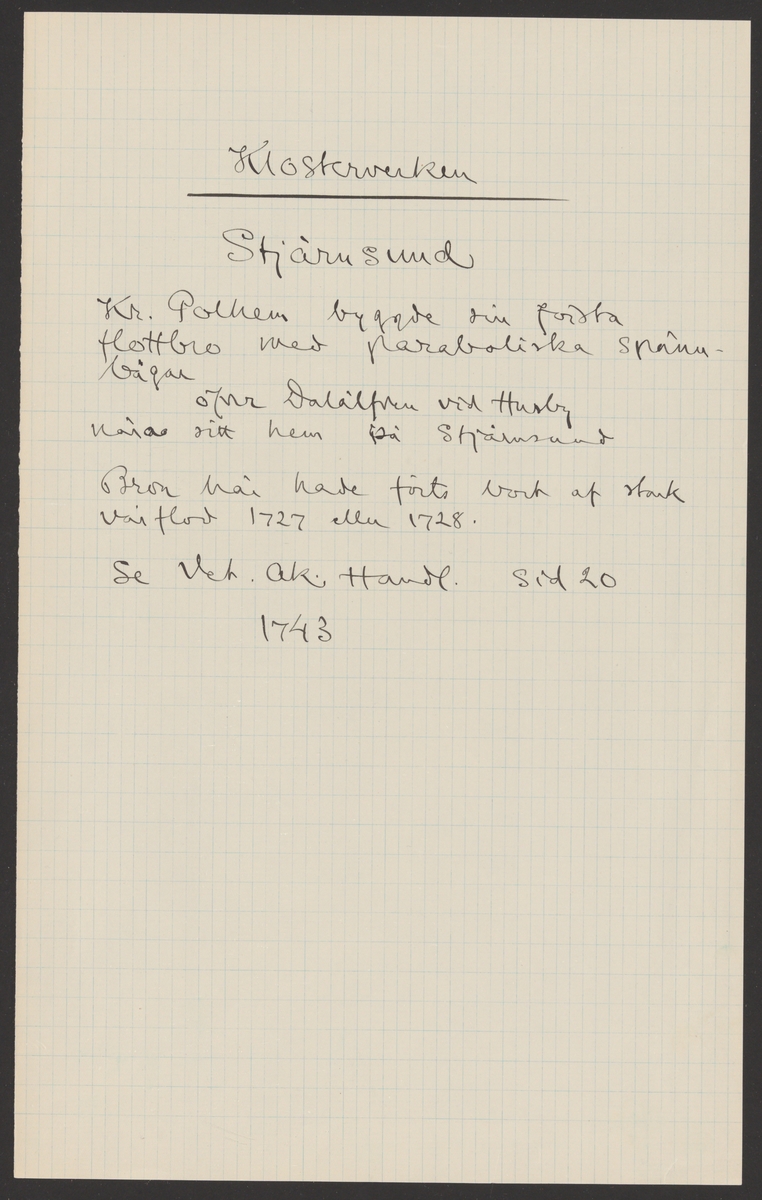 Klosterverken
Stjärnsund
Kr. Polhem byggde sin första
flottbro med paraboliska spänn-
bågar
öfver Dalälfven vid Husby
nära sitt hem på Stjärnsund
Bron här hade förts bort af stark
vårflod 1727 eller 1728.
Se Vet. Ak. Handl. Sid 20
1743